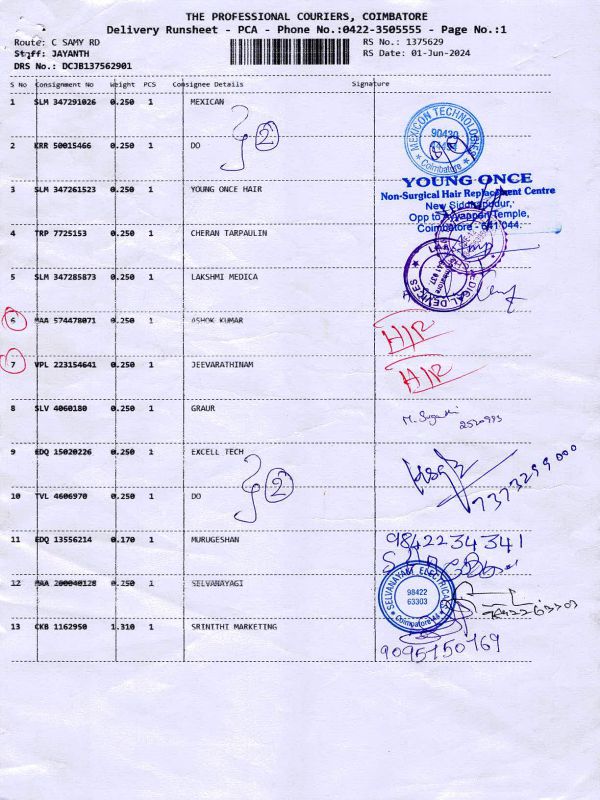 THE PROFESSIONAL COURIERS, COIMBATORE
Delivery Runsheet - PCA - Phone No.:0422-3505555 - Page No.:1
Route: C SAMY RD RS No.: 1375629
Staff: JAYANTH RS Date: 01-Jun-2024
DRS No.: DCJB137562901
S No Consignment No Weight PCS Consignee Details Signature
1 SLM 347291026 0.250 1 MEXICAN
MEXICON TECHNOLOGIES
90430
Coimbatore
2 KRR 50015466 0.250 1 DO
2
3 SLM 347261523 0.250 1 YOUNG ONCE HAIR
YOUNG ONCE
Non-Surgical Hair Replacement Centre
New Siddhapudur,
Opp to Ayyappan Temple,
Coimbatore - 641 044.
4 TRP 7725153 0.250 1 CHERAN TARPAULIN
5 SLM 347285873 0.250 1 LAKSHMI MEDICA
MEDICAL DEVICES
6 MAA 574478071 0.250 1 ASHOK KUMAR
H/R
7 VPL 223154641 0.250 1 JEEVARATHINAM
H/R
8 SLV 4060180 0.250 1 GRAUR
9 EDQ 15020226 0.250 1 EXCELL TECH
7373299000
10 TVL 4606970 0.250 1 DO
2
11 EDQ 13556214 0.170 1 MURUGESHAN
9842234341
12 MAA 200040128 0.250 1 SELVANAYAGI
SELVANAYAKI ELECTRICALS
98422
63303
Coimbatore
9842263303
13 CKB 1162950 1.310 1 SRINITHI MARKETING
9095750769